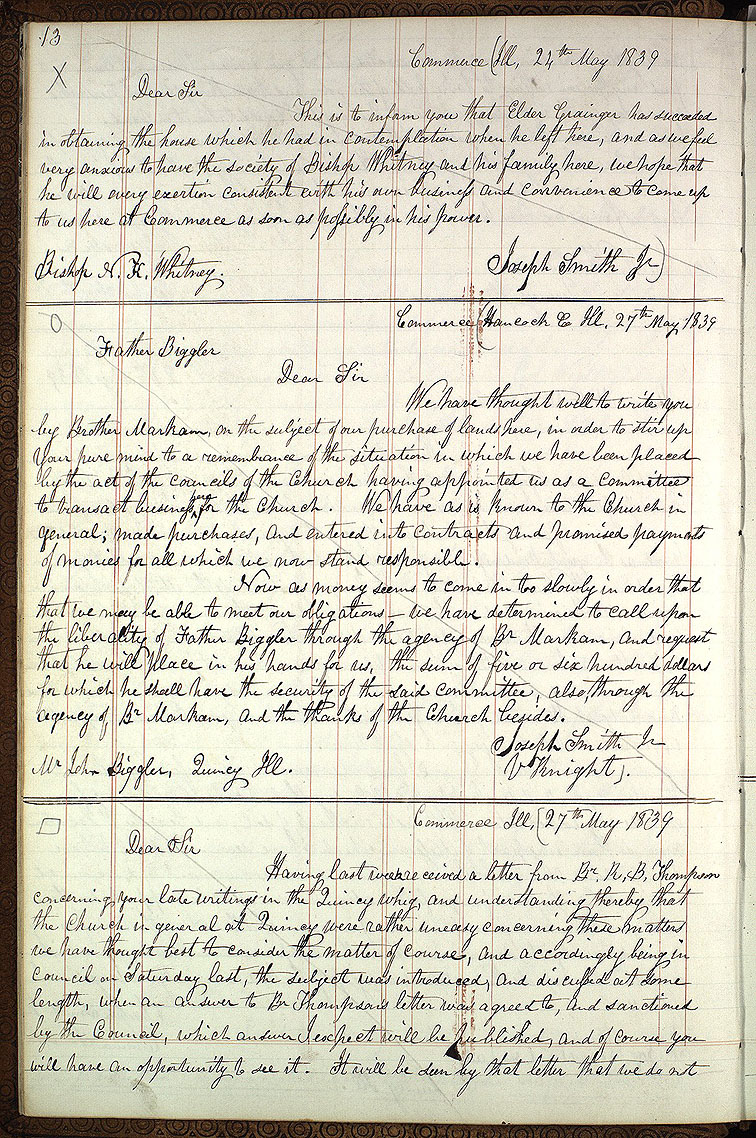 13
Commerce (Ill, 24th May 1839
Dear Sir
This is to inform you that Elder Grainger has succeeded
in obtaining the house which he had in contemplation when he left here, and as we feel
very anxious to have the society of Bishop Whitney and his family here, we hope that
he will every exertion consistent with his own business and convenience to come up
to us here at Commerce as soon as possibly in his power.
Bishop N. K. Whitney.
Joseph Smith Jr)
Commerce (Hancock Co Ill, 27th May 1839
Father Biggler
Dear Sir
We have thought well to write you
by Brother Markam, on the subject of our purchase of lands here, in order to stir up
your pure mind to a remembrance of the situation in which we have been placed
by the act of the councils of the Church having appointed us as a committee
to transact business for the Church. We have as is known to the Church in
general; made purchases, and entered into contracts and promised payments
of monies for all which we now stand responsible.
Now as money seems to come in too slowly in order that
that we may be able to meet our obligations - we have determined to call upon
the liberality of Father Biggler through the agency of Br Markam, and request
that he will place in his hands for us, the sum of five or six hundred dollars
for which he shall have the security of the said committee, also, through the
agency of Br Markam, and the thanks of the Church besides.
Joseph Smith Jr
Mr John Biggler, Quincy Ill.
V Knight).
Commerce Ill, (27th May 1839
Dear Sir
Having last week received a letter from Br. R. B. Thompson
concerning your late writings in the Quincy whig, and understanding thereby that
the Church in general at Quincy were rather uneasy concerning these matters
we have thought best to consider the matter of course, and accordingly being in
council on Saturday last, the subject was introduced, and discussed at some
length, when an answer to Br Thompsons letter was agreed to, and sanctioned
by the Council, which answer I expect will be published, and of course you
will have an opportunity to see it. It will be seen by that letter that we do not